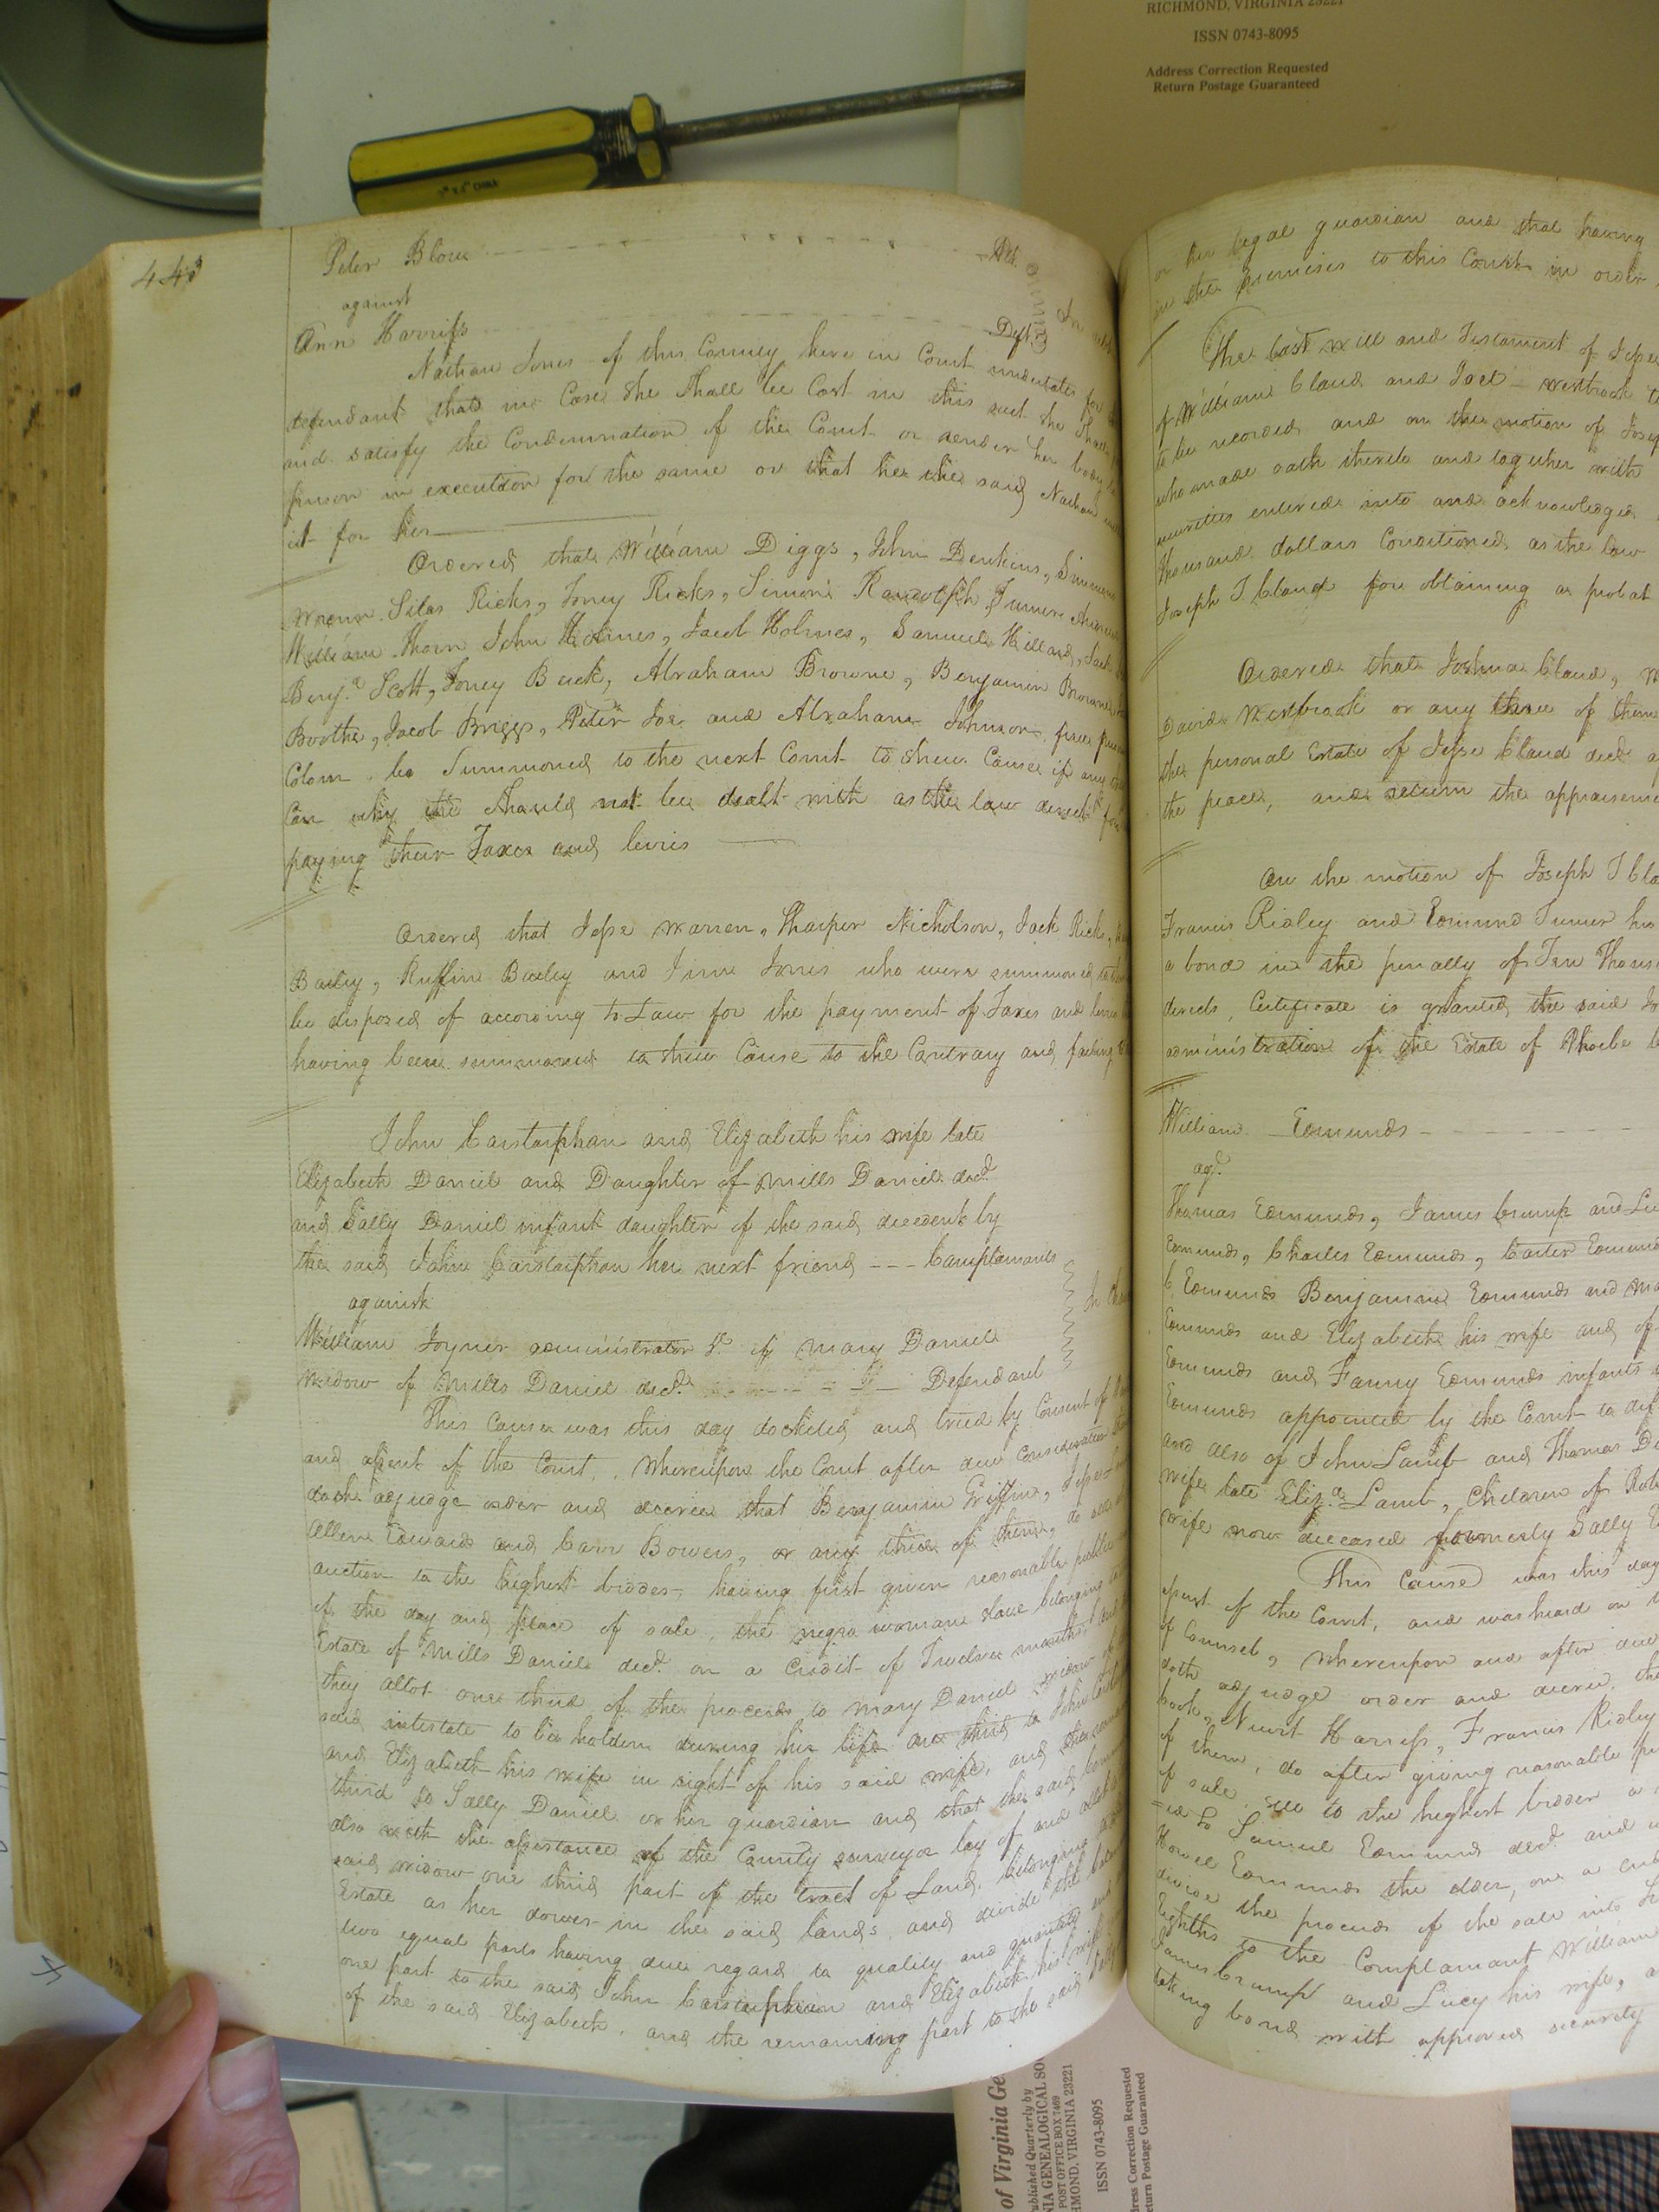 RICHMOND, VIRGINIA 23221
ISSN 0743-8095
Address Correction Requested
Return Postage Guaranteed
CHINA
Peter Blow
against
Ann Harriss Deft.
Nathan Jones of this County here in Court undertakes for
defendant that in Case she shall be Cast in this suit she shall
and satisfy the Condemnation of the Court or render her body
prison in execution for the same or that he the said Nathan
it for her
Ordered that William Diggs, John Denkins,
Wrenn Silas Ricks, Toney Ricks, Simon Randolph
William Thorn John Holmes, Jacob Holmes, Samuel Hilliard,
Benj.a Scott, Toney Beck, Abraham Browne, Benjamin Browne
Boothe, Jacob Briggs, Peter Joe and Abraham Johnson free
Colour be Summoned to the next Court to shew Cause if any
Can why the should not be dealt with as the law directs for
paying their Taxes and levies
Ordered that Jesse Warren, Sharper Nicholson, Jack Ricks,
Bailey, Ruffin Bailey and Jim Jones who were summoned
be disposed of according to Law for the payment of Taxes and
having been summoned to shew Cause to the Contrary and failing
John Carstarphan and Elizabeth his wife late
Elizabeth Daniel and Daughter of Mills Daniel decd.
and Sally Daniel infant daughter of the said decedent by
the said John Carstarphan her next friend --- Complainants
against
William Joyner administrator &c. of Mary Daniel
widow of Mills Daniel decd. Defendant
This Cause was this day docketed and tried by Consent of
and assent of the Court, Whereupon the Court after due Consideration
doth adjudge order and decree that Benjamin Griffin, Jesse
Allen Edwards and Carr Bowers, or any three of them, do
auction to the highest bidder, having first given reasonable public
of the day and place of sale, the negro woman slave belonging
Estate of Mills Daniel decd. on a Credit of Twelve months
they allot one third of the proceeds to Mary Daniel widow of
said intestate to be holden during her life one third to John
and Elizabeth his wife in right of his said wife, and the
third to Sally Daniel or her guardian and that the said
also with the assistance of the County surveyor lay of and allot
said widow one third part of the tract of Land belonging
Estate as her dower in the said lands, and divide the
two equal parts having due regard to quality and quantity and
one part to the said John Carstarphan and Elizabeth his wife
of the said Elizabeth, and the remaining part to the said
or her legal guardian and that having
in the premises to this Court in order
The last will and Testament of Jesse
of William Claud and Joel Westbrook
to be recorded and on the motion of Joseph
who made oath thereto and together with
securities entered into and acknowledged
thousand dollars Conditioned as the law
Joseph T Claud for obtaining a probat
Ordered that Joshua Claud,
David Westbrook or any three of them
the personal Estate of Jesse Claud decd.
the peace, and return the appraisement
On the motion of Joseph T
Francis Ridley and Edmund Turner his
a bond in the penalty of Ten Thousand
directs, Certificate is granted the said
administration of the Estate of Phoebe
William Edmunds
agt.
Thomas Edmunds, James Crump and
Edmunds, Charles Edmunds, Carter Edmunds
Edmunds Benjamin Edmunds and
Edmunds and Elizabeth his wife and of
Edmunds and Fanny Edmunds infants
Edmunds appointed by the Court to
and also of John Lamb and Thomas
wife late Eliz.a Lamb, Children of
wife now deceased formerly Sally
This Cause was this day
of the Court, and was heard on
of Counsel, Whereupon and after due
doth adjudge order and decree, that
Nuit Harriss, Francis Ridley
of them, do after giving reasonable
of sale, sell to the highest bidder a
to Samuel Edmunds decd. and
Howel Edmunds the elder, on a
divide the proceeds of the sale into
Eighths to the Complainant William
James Crump and Lucy his wife,
taking bond with approved security
of Virginia
Published Quarterly by
GENEALOGICAL
POST OFFICE BOX 7469
RICHMOND, VIRGINIA 23221
ISSN 0743-8095
Address Correction Requested
Return Postage Guaranteed